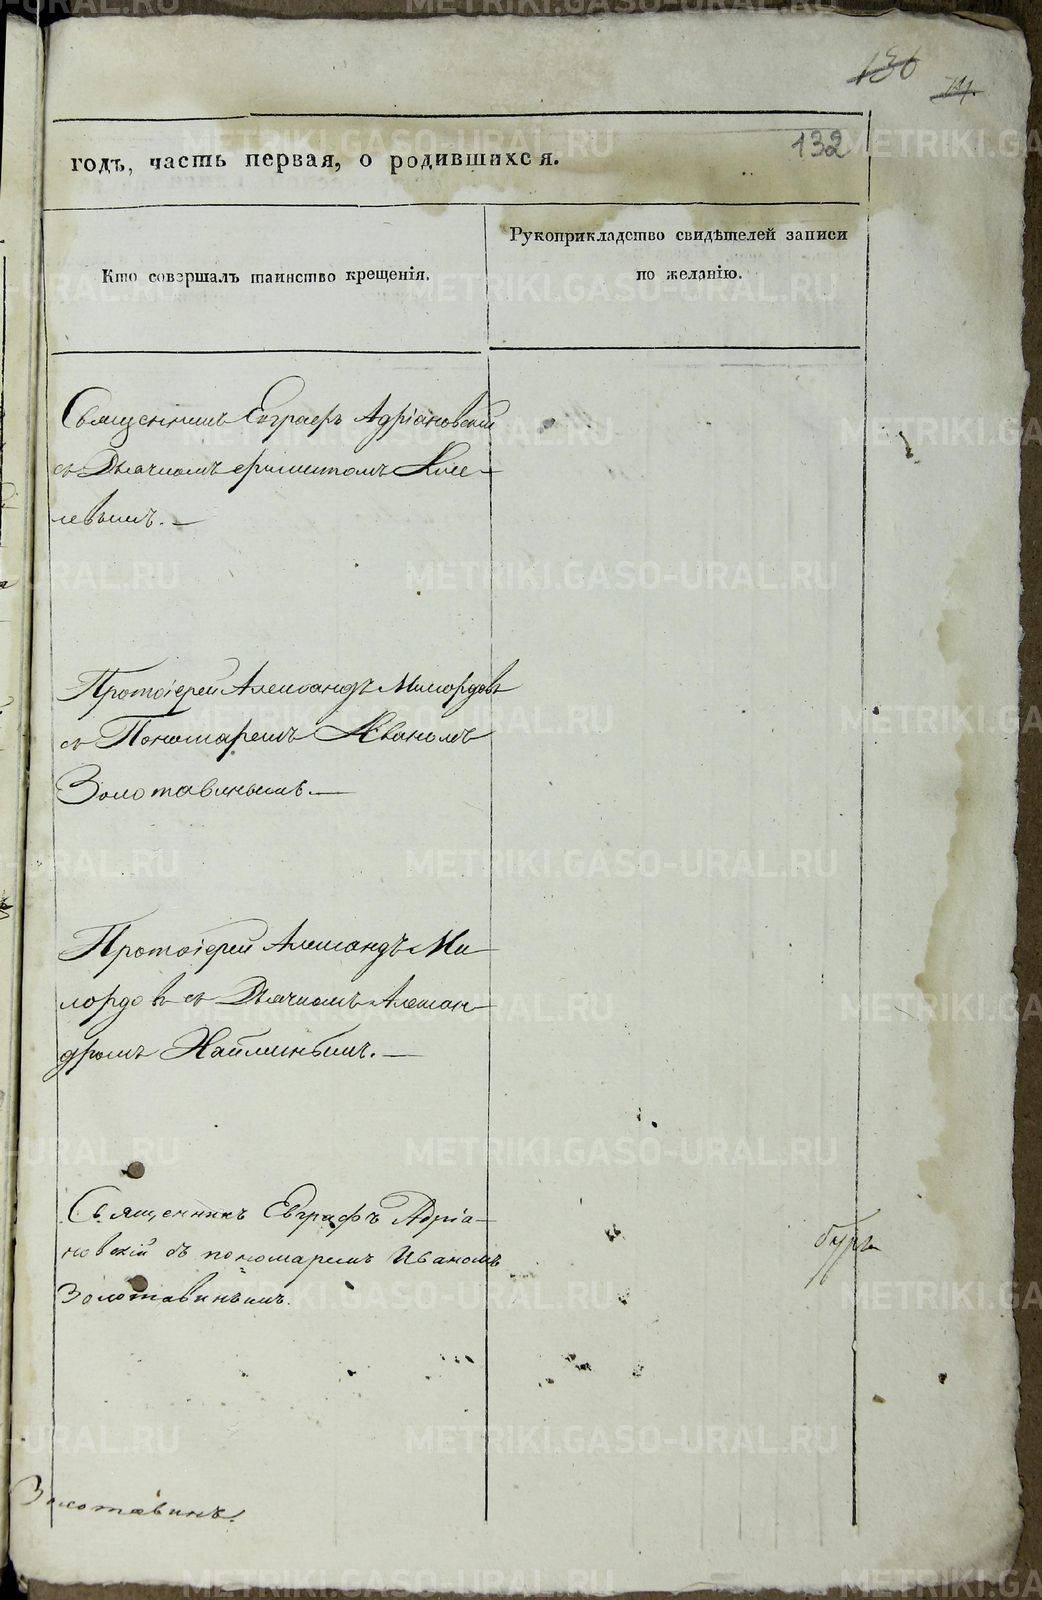 136
132
годъ, часть первая, о родившихся.
Кто совершалъ таинство крещенія.
Рукоприкладство свидѣтелей записи
по желанію.
Священникъ Евграфъ Адріановскій
съ Дьячкомъ
левымъ. —
Протоіерей Александъ Милордовъ
съ Пономаремъ Иваномъ
Золотавинымъ. —
Протоіерей Александъ Ми-
лордовъ съ Дьячкомъ Алексан-
дромъ
Священникъ Евграфъ Адріа-
новскій съ пономаремъ Иваномъ
Золотавинымъ.
Золотавинъ.
METRIKI.GASO-URAL.RU